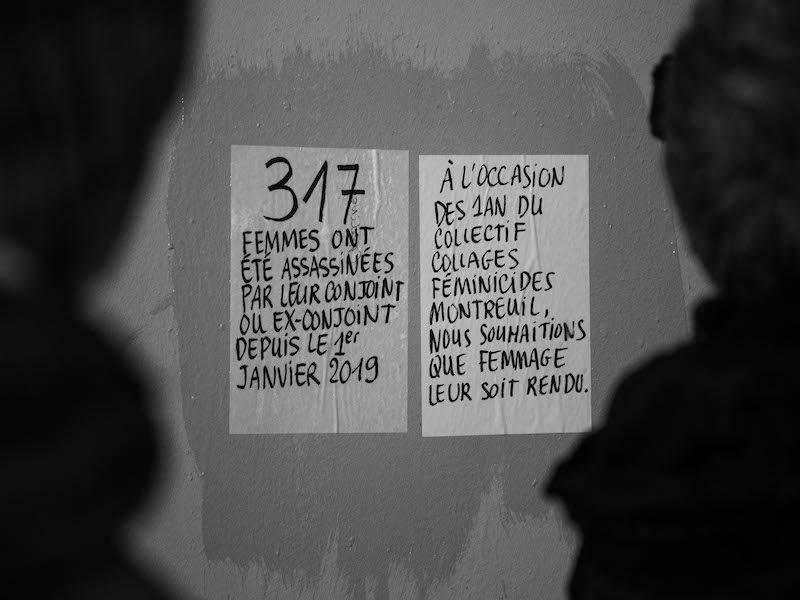 317
FEMMES ONT
ÉTÉ ASSASSINÉES
PAR LEUR CONJOINT
OU EX-CONJOINT
DEPUIS LE 1er
JANVIER 2019
À L'OCCASION
DES 1AN DU
COLLECTIF
COLLAGES
FÉMINICIDES
MONTREUIL,
NOUS SOUHAITIONS
QUE FEMMAGE
LEUR SOIT RENDU.